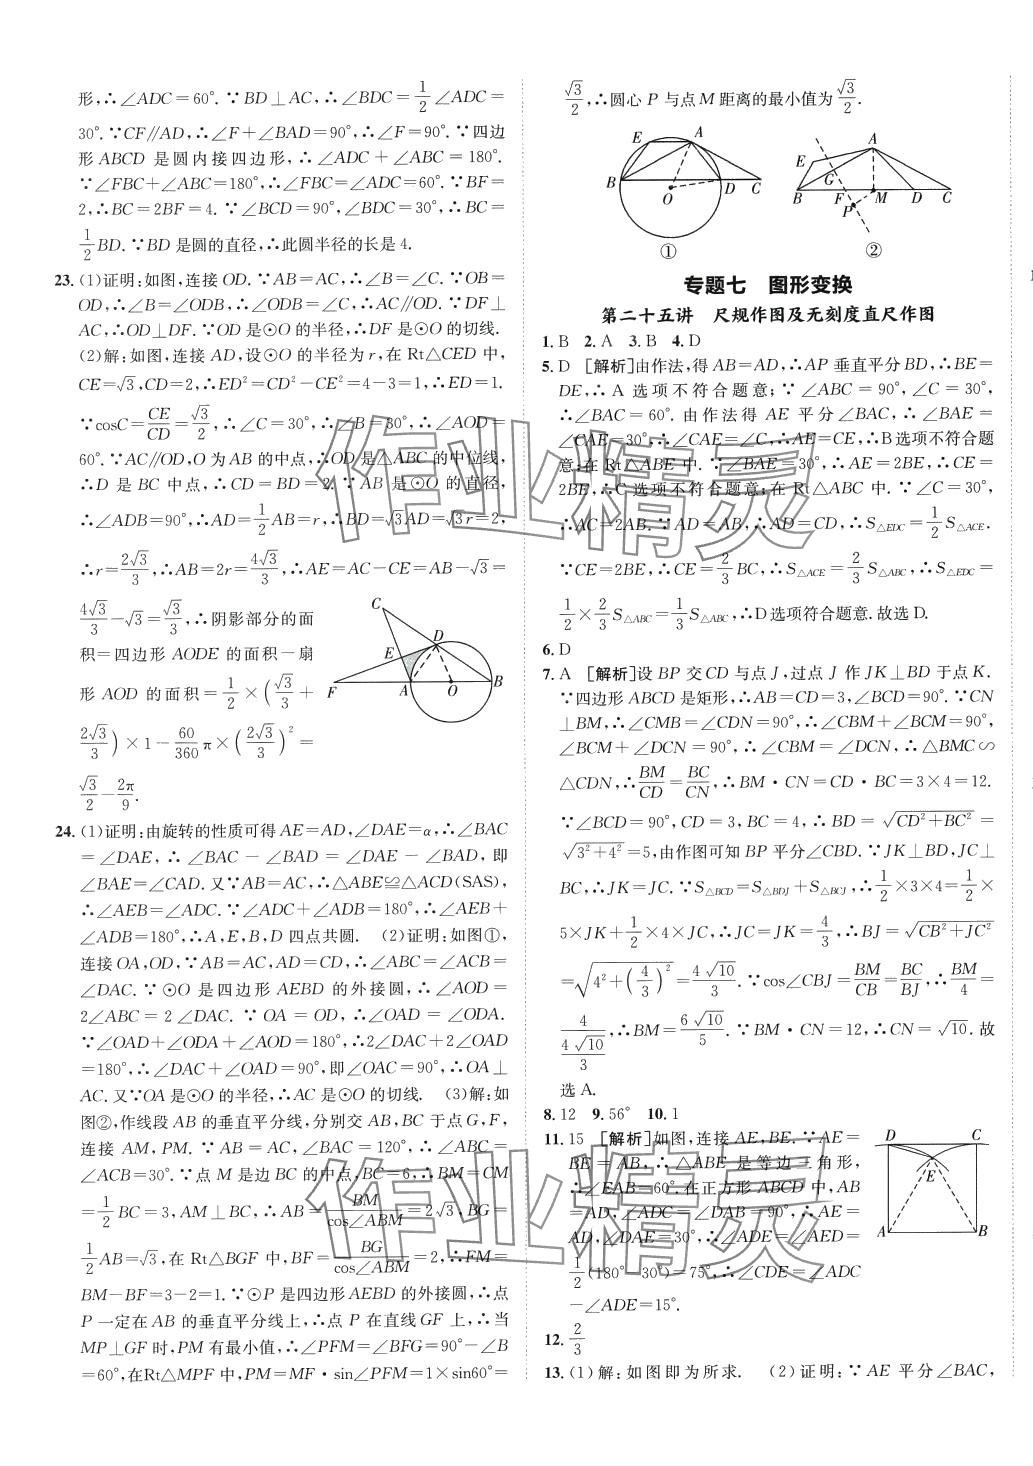 形,∴∠ADC=60°.∵BD⊥AC,∴∠BDC=1/2∠ADC=
30°.∵CF∥AD,∴∠F+∠BAD=90°,∴∠F=90°.∵四边
形ABCD是圆内接四边形,∴∠ADC+∠ABC=180°.
∵∠FBC+∠ABC=180°,∴∠FBC=∠ADC=60°.∵BF=
2,∴BC=2BF=4.∵∠BCD=90°,∠BDC=30°,∴BC=
1/2BD.∵BD是圆的直径,∴此圆半径的长是4.
23.(1)证明:如图,连接OD.∵AB=AC,∴∠B=∠C.∵OB=
OD,∴∠B=∠ODB,∴∠ODB=∠C,∴AC∥OD.∵DF⊥
AC,∴OD⊥DF.∵OD是⊙O的半径,∴DF是⊙O的切线.
(2)解:如图,连接AD,设⊙O的半径为r,在Rt△CED中,
CE=√3,CD=2,∴ED²=CD²-CE²=4-3=1,∴ED=1.
∵cosC=CE/CD=√3/2,∴∠C=30°,∴∠B=30°,∴∠AOD=
60°.∵AC∥OD,O为AB的中点,∴OD是△ABC的中位线,
∴D是BC中点,∴CD=BD=2.∵AB是⊙O的直径,
∴∠ADB=90°,∴AD=1/2AB=r,∴BD=√3AD=√3r=2,
∴r=2√3/3,∴AB=2r=4√3/3,∴AE=AC-CE=AB-√3=
4√3/3-√3=√3/3,∴阴影部分的面
积=四边形AODE的面积-扇
形AOD的面积=1/2×(√3/3+
2√3/3)×1-60/360π×(2√3/3)²=
√3/2-2π/9.
C
D
E
F
A
O
B
24.(1)证明:由旋转的性质可得AE=AD,∠DAE=α,∴∠BAC
=∠DAE,∴∠BAC-∠BAD=∠DAE-∠BAD,即
∠BAE=∠CAD.又∵AB=AC,∴△ABE≌△ACD(SAS),
∴∠AEB=∠ADC.∵∠ADC+∠ADB=180°,∴∠AEB+
∠ADB=180°,∴A,E,B,D四点共圆. (2)证明:如图①,
连接OA,OD.∵AB=AC,AD=CD,∴∠ABC=∠ACB=
∠DAC.∵⊙O是四边形AEBD的外接圆,∴∠AOD=
2∠ABC=2∠DAC.∵OA=OD,∴∠OAD=∠ODA.
∵∠OAD+∠ODA+∠AOD=180°,∴2∠DAC+2∠OAD
=180°,∴∠DAC+∠OAD=90°,即∠OAC=90°,∴OA⊥
AC.又∵OA是⊙O的半径,∴AC是⊙O的切线. (3)解:如
图②,作线段AB的垂直平分线,分别交AB,BC于点G,F,
连接AM,PM.∵AB=AC,∠BAC=120°,∴∠ABC=
∠ACB=30°.∵点M是边BC的中点,BC=6,∴BM=CM
=1/2BC=3,AM⊥BC,∴AB=BM/cos∠ABM=2√3,BG=
1/2AB=√3,在Rt△BGF中,BF=BG/cos∠ABM=2,∴FM=
BM-BF=3-2=1.∵⊙P是四边形AEBD的外接圆,∴点
P一定在AB的垂直平分线上,∴点P在直线GF上,∴当
MP⊥GF时,PM有最小值,∴∠PFM=∠BFG=90°-∠B
=60°,在Rt△MPF中,PM=FM·sin∠PFM=1×sin60°=
√3/2,∴圆心P与点M距离的最小值为√3/2.
E A B O D C
①
A E G B F P M D C
②
专题七 图形变换
第二十五讲 尺规作图及无刻度直尺作图
1.B 2.A 3.B 4.D
5.D [解析]由作法,得AB=AD,∴AP垂直平分BD,∴BE=
DE,∴A选项不符合题意;∵∠ABC=90°,∠C=30°,
∴∠BAC=60°.由作法得AE平分∠BAC,∴∠BAE=
∠CAE=30°,∴∠CAE=∠C,∴AE=CE,∴B选项不符合题
意;在Rt△ABE中.∵∠BAE=30°,∴AE=2BE,∴CE=
2BE,∴C选项不符合题意;在Rt△ABC中.∵∠C=30°,
∴AC=2AB.∵AD=AB,∴AD=CD,∴S△EDC=1/2S△ACE.
∵CE=2BE,∴CE=2/3BC,∴S△ACE=2/3S△ABC,∴S△EDC=
1/2×2/3S△ABC=1/3S△ABC,∴D选项符合题意.故选D.
6.D
7.A [解析]设BP交CD与点J,过点J作JK⊥BD于点K.
∵四边形ABCD是矩形,∴AB=CD=3,∠BCD=90°.∵CN
⊥BM,∴∠CMB=∠CDN=90°,∴∠CBM+∠BCM=90°,
∠BCM+∠DCN=90°,∴∠CBM=∠DCN,∴△BMC∽
△CDN,∴BM/CD=BC/CN,∴BM·CN=CD·BC=3×4=12.
∵∠BCD=90°,CD=3,BC=4,∴BD=√(CD²+BC²)=
√(3²+4²)=5,由作图可知BP平分∠CBD.∵JK⊥BD,JC⊥
BC,∴JK=JC.∵S△BCD=S△BDJ+S△BCJ,∴1/2×3×4=1/2×
5×JK+1/2×4×JC,∴JC=JK=4/3,∴BJ=√(CB²+JC²)
=√(4²+(4/3)²)=4√10/3.∵cos∠CBJ=BM/CB=BC/BJ,∴BM/4=
4/(4√10/3),∴BM=6√10/5.∵BM·CN=12,∴CN=√10.故
选A.
8.12 9.56° 10.1
11.15 [解析]如图,连接AE,BE.∵AE=
BE=AB,∴△ABE是等边三角形,
∴∠EAB=60°.在正方形ABCD中,AB
=AD,∠ADC=∠DAB=90°,∴AE=
AD,∠DAE=30°,∴∠ADE=∠AED=
1/2(180°-30°)=75°,∴∠CDE=∠ADC
-∠ADE=15°.
D C
E
A B
12.2/3
13.(1)解:如图即为所求. (2)证明:∵AE平分∠BAC,
作业精灵
作业精灵